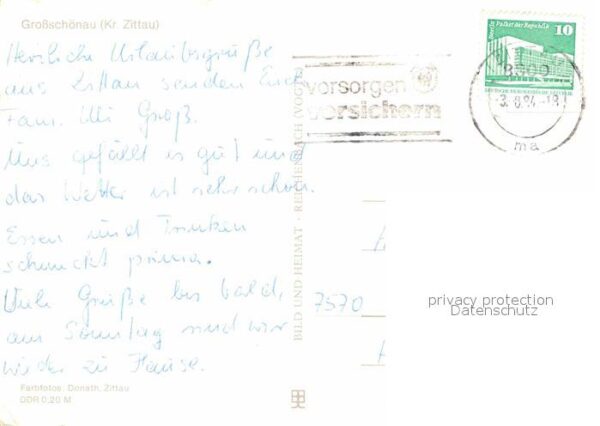 Großschönau (Kr. Zittau)
Herzliche Urlaubsgrüße
aus Zittau senden Euch
Fam. Groß.
Uns gefällt es gut und
das Wetter ist sehr schön.
Essen und Trinken
schmeckt prima.
Viele Grüße bis bald,
am Sonntag sind wir
wieder zu Hause.
Farbfotos: Donath, Zittau
DDR 0,20 M
BILD UND HEIMAT · REICHENBACH (VOGTL)
vorsorgen
versichern
Palast der Republik
10
7570
privacy protection
Datenschutz